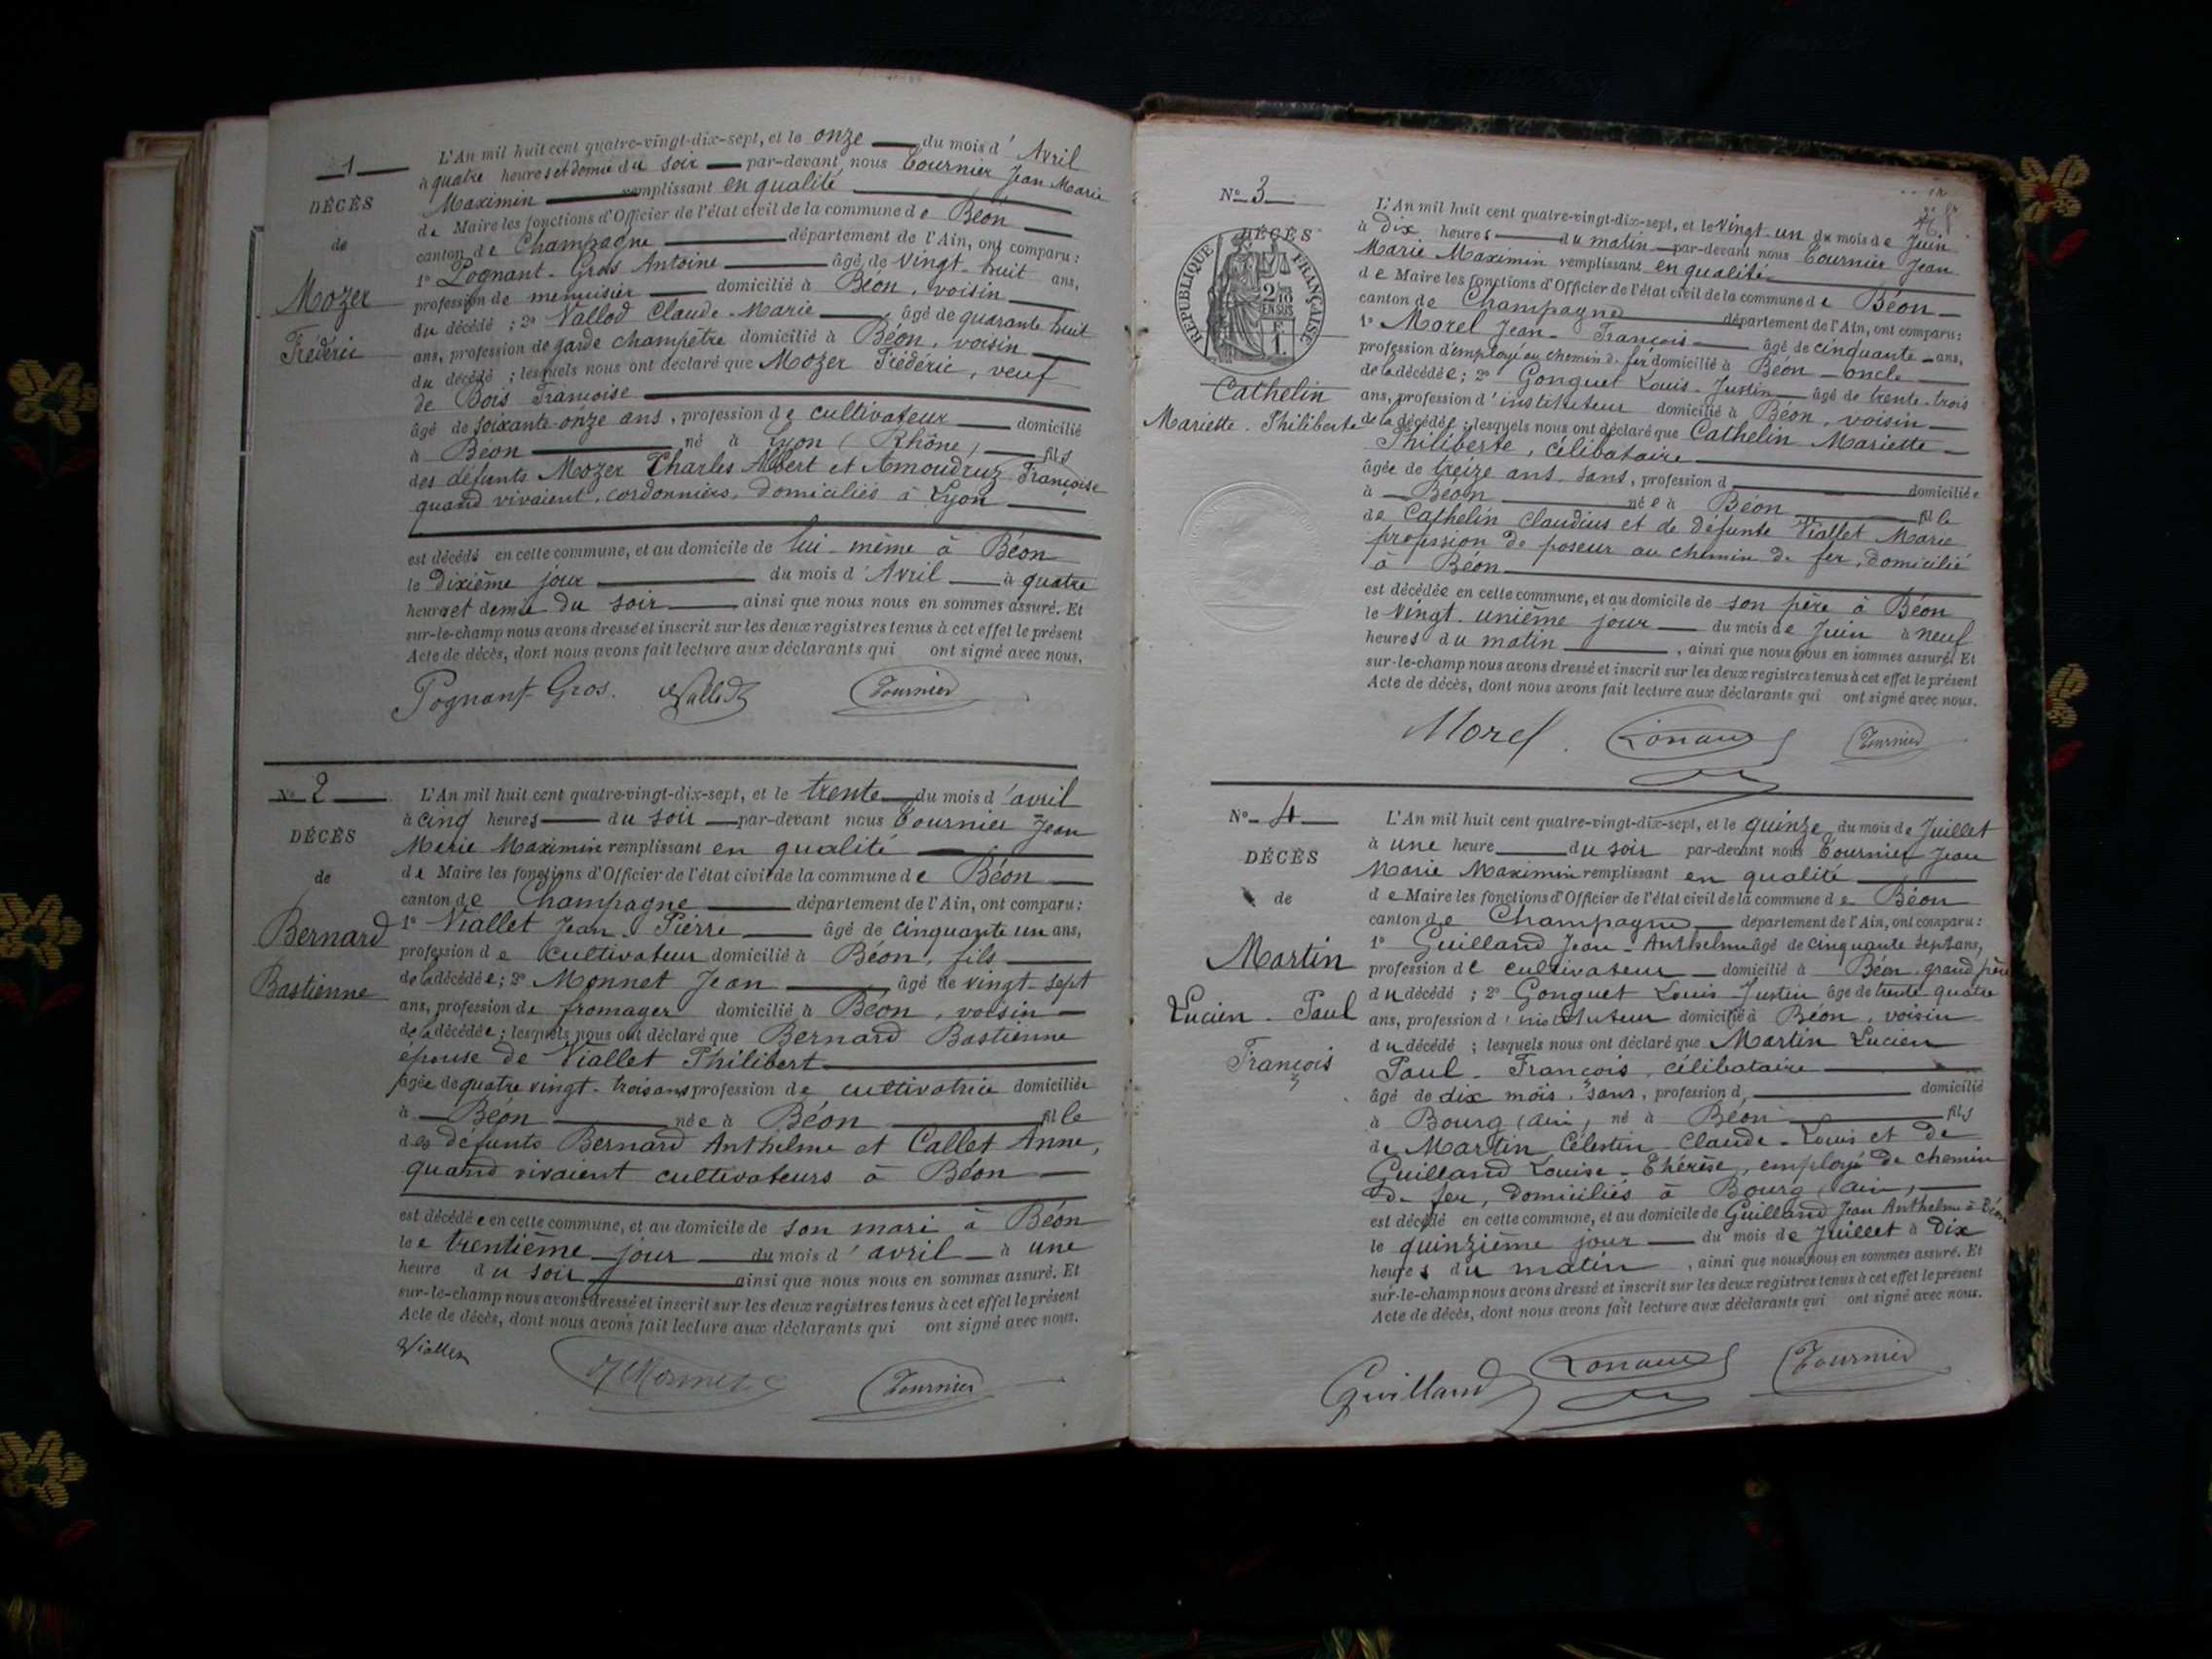 1
DÉCÈS
de
Mozer
Frédéric
L'An mil huit cent quatre-vingt-dix-sept, et le onze du mois d'Avril
à quatre heures et demie du soir par-devant nous Tournier Jean Marie
Maximin remplissant en qualité
de Maire les fonctions d'Officier de l'état civil de la commune de Béon
canton de Champagne département de l'Ain, ont comparu :
1° Pognant-Gros Antoine âgé de vingt-huit ans,
profession de menuisier domicilié à Béon, voisin
du décédé ; 2° Vallod Claude-Marie âgé de quarante huit
ans, profession de garde champêtre domicilié à Béon, voisin
du décédé ; lesquels nous ont déclaré que Mozer Frédéric, veuf
de Bois Françoise
âgé de soixante-onze ans, profession de cultivateur domicilié
à Béon né à Lyon (Rhône) fils
des défunts Mozer Charles Albert et Amoudruz Françoise
quand vivaient, cordonniers, domiciliés à Lyon
est décédé en cette commune, et au domicile de lui-même à Béon
le dixième jour du mois d'Avril à quatre
heures et demie du soir ainsi que nous nous en sommes assuré. Et
sur-le-champ nous avons dressé et inscrit sur les deux registres tenus à cet effet le présent
Acte de décès, dont nous avons fait lecture aux déclarants qui ont signé avec nous.
Pognant-Gros. Vallod Tournier
N° 2
DÉCÈS
de
Bernard
Bastienne
L'An mil huit cent quatre-vingt-dix-sept, et le trente du mois d'avril
à cinq heures du soir par-devant nous Tournier Jean
Marie Maximin remplissant en qualité
de Maire les fonctions d'Officier de l'état civil de la commune de Béon
canton de Champagne département de l'Ain, ont comparu :
1° Viallet Jean-Pierre âgé de cinquante un ans,
profession de cultivateur domicilié à Béon, fils
de la décédée ; 2° Monnet Jean âgé de vingt-sept
ans, profession de fromager domicilié à Béon, voisin
de la décédée ; lesquels nous ont déclaré que Bernard Bastienne
épouse de Viallet Philibert
âgée de quatre vingt-trois ans profession de cultivatrice domiciliée
à Béon née à Béon fille
des défunts Bernard Anthelme et Callet Anne,
quand vivaient cultivateurs à Béon
est décédée en cette commune, et au domicile de son mari à Béon
le trentième jour du mois d'avril à une
heure du soir ainsi que nous nous en sommes assuré. Et
sur-le-champ nous avons dressé et inscrit sur les deux registres tenus à cet effet le présent
Acte de décès, dont nous avons fait lecture aux déclarants qui ont signé avec nous.
Viallet Monnet Tournier
N° 3
DÉCÈS
RÉPUBLIQUE FRANÇAISE
2/10 EN SUS
Cathelin
Mariette-Philiberte
L'An mil huit cent quatre-vingt-dix-sept, et le vingt-un du mois de Juin
à dix heures du matin par-devant nous Tournier Jean
Marie Maximin remplissant en qualité
de Maire les fonctions d'Officier de l'état civil de la commune de Béon
canton de Champagne département de l'Ain, ont comparu :
1° Morel Jean-François âgé de cinquante ans,
profession d'employé au chemin de fer domicilié à Béon oncle
de la décédée ; 2° Gonguet Louis-Justin âgé de trente-trois
ans, profession d'instituteur domicilié à Béon, voisin
de la décédée ; lesquels nous ont déclaré que Cathelin Mariette
Philiberte, célibataire
âgée de treize ans, sans, profession d domiciliée
à Béon née à Béon fille
de Cathelin Claudius et de défunte Viallet Marie
profession de poseur au chemin de fer, domicilié
à Béon
est décédée en cette commune, et au domicile de son père à Béon
le vingt-unième jour du mois de Juin à neuf
heures du matin, ainsi que nous nous en sommes assuré. Et
sur-le-champ nous avons dressé et inscrit sur les deux registres tenus à cet effet le présent
Acte de décès, dont nous avons fait lecture aux déclarants qui ont signé avec nous.
Morel. Tournier
N° 4
DÉCÈS
de
Martin
Lucien-Paul
François
L'An mil huit cent quatre-vingt-dix-sept, et le quinze du mois de Juillet
à une heure du soir par-devant nous Tournier Jean
Marie Maximin remplissant en qualité
de Maire les fonctions d'Officier de l'état civil de la commune de Béon
canton de Champagne département de l'Ain, ont comparu :
1° Guilland Jean-Anthelme âgé de cinquante sept ans,
profession de cultivateur domicilié à Béon grand père
du décédé ; 2° Gonguet Louis-Justin âgé de trente-quatre
ans, profession d'instituteur domicilié à Béon, voisin
du décédé ; lesquels nous ont déclaré que Martin Lucien
Paul-François, célibataire
âgé de dix mois, sans, profession d domicilié
à Bourg (Ain) né à Béon fils
de Martin Célestin-Claude-Louis et de
Guilland Louise-Thérèse, employé de chemin
de fer, domiciliés à Bourg (Ain)
est décédé en cette commune, et au domicile de Guilland Jean Anthelme à Béon
le quinzième jour du mois de Juillet à dix
heures du matin, ainsi que nous nous en sommes assuré. Et
sur-le-champ nous avons dressé et inscrit sur les deux registres tenus à cet effet le présent
Acte de décès, dont nous avons fait lecture aux déclarants qui ont signé avec nous.
Guilland Tournier